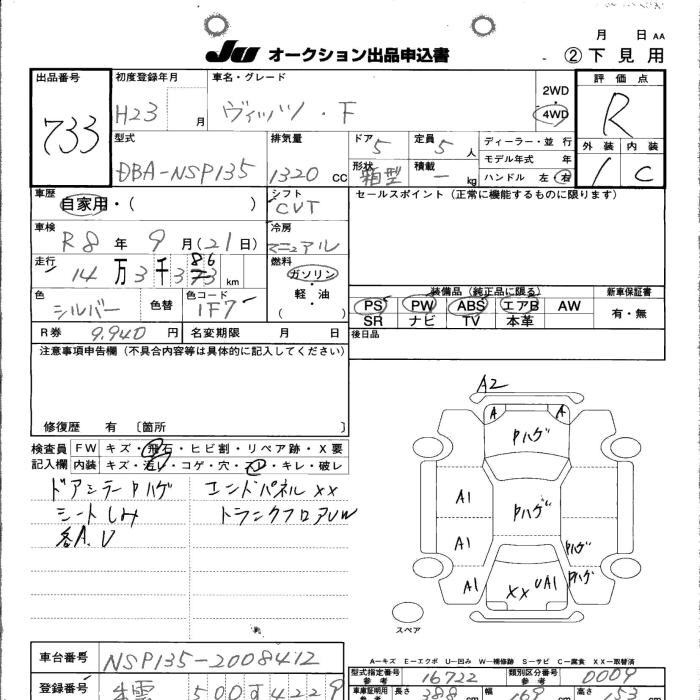 月 日 AA
JU オークション出品申込書 ②下見用
出品番号 733
初度登録年月 H23 月
車名・グレード ヴィッツ・F
2WD
4WD
評価点 R
外装 1 内装 C
型式 DBA-NSP135
排気量 1320 CC
ドア 5
定員 5 人
ディーラー・並行
モデル年式 年
ハンドル 左 右
形状 箱型
積載 － kg
車歴 自家用・( )
シフト CVT
セールスポイント (正常に機能するものに限ります)
車検 R8 年 9 月 (21 日)
冷房 マニュアル
走行 14 万 3 千 3 86 km
燃料 ガソリン・軽油 ( )
色 シルバー 色替 色コード 1F7
装備品 (純正品に限る) 新車保証書
PS PW ABS エアB AW
SR ナビ TV 本革
有・無
R券 9,940 円 名変期限 月 日
後日品
注意事項申告欄 (不具合内容等は具体的に記入してください)
修復歴 有 〔箇所 〕
検査員記入欄
FW キズ・飛石・ヒビ割・リペア跡・X要
内装 キズ・汚レ・コゲ・穴・スレ・キレ・破レ
ドアミラーPハゲ エンドパネルXX
シートしみ トランクフロアUW
各A.U
A2
A A
Pハゲ
A1 Pハゲ
A1 Pハゲ
A1 XX UA1 Pハゲ
スペア
A－キズ E－エクボ U－凹み W－補修跡 S－サビ C－腐食 XX－取替済
車台番号 NSP135-2008412
型式指定番号 参考 16722 類別区分番号 参考 0009
登録番号 出雲 500す4229
車庫証明用 参考 長さ 388 cm 幅 169 cm 高さ 153 cm